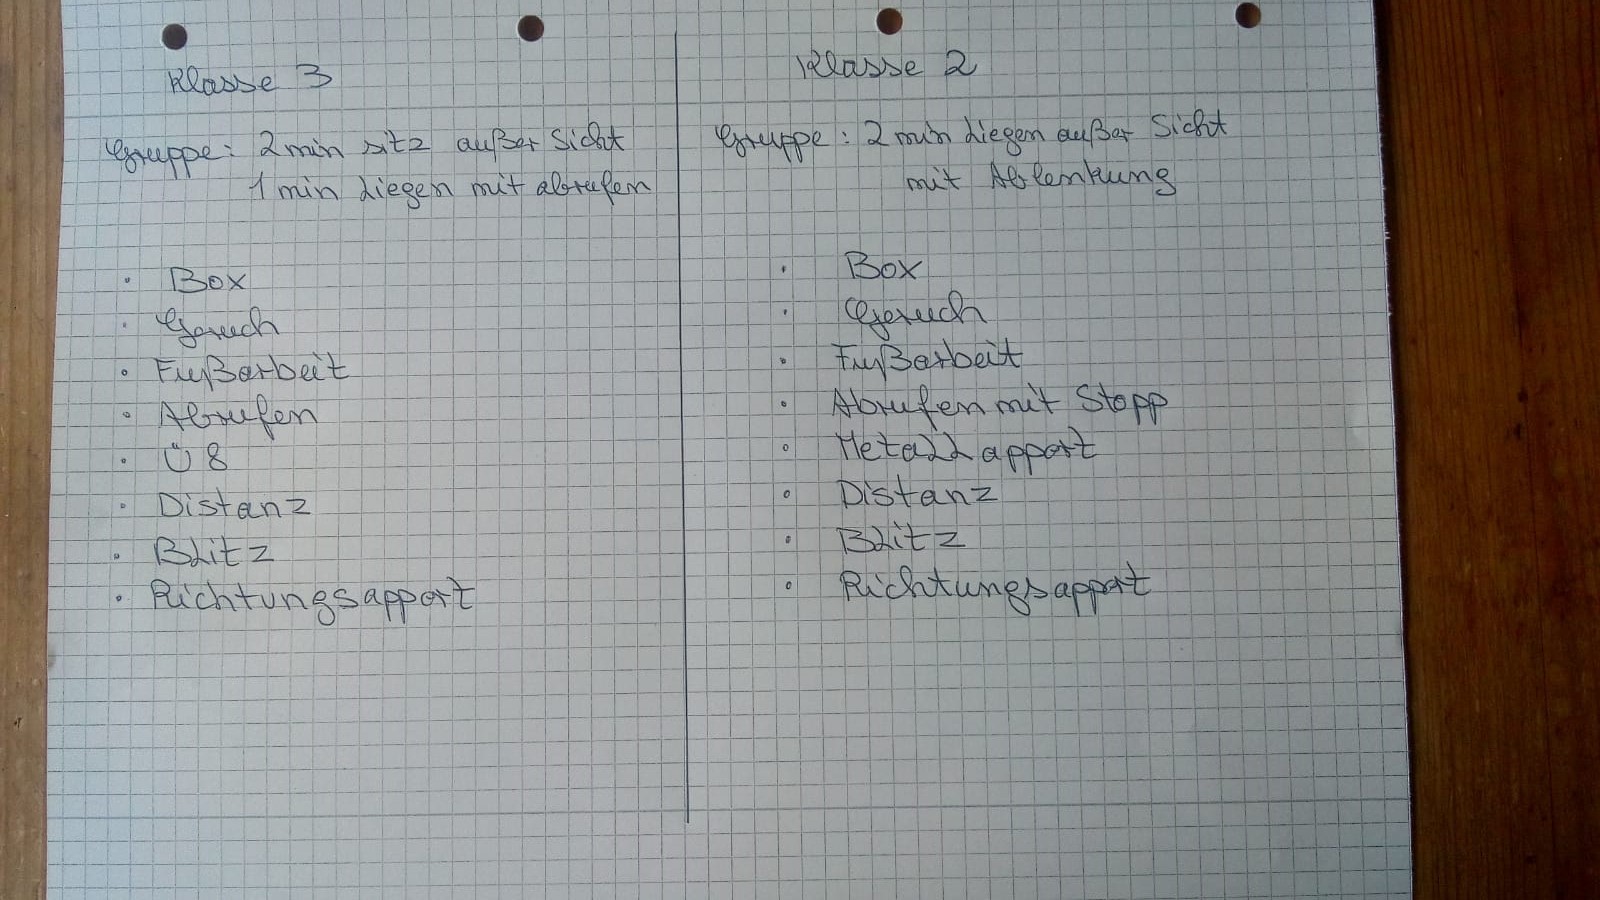 Klasse 3
Gruppe: 2 min sitz außer Sicht
1 min Liegen mit abrufen
· Box
· Geruch
· Fußarbeit
· Abrufen
· Ü 8
· Distanz
· Blitz
· Richtungsapport
Klasse 2
Gruppe: 2 min Liegen außer Sicht
mit Ablenkung
· Box
· Geruch
· Fußarbeit
· Abrufen mit Stopp
· Metallapport
· Distanz
· Blitz
· Richtungsapport